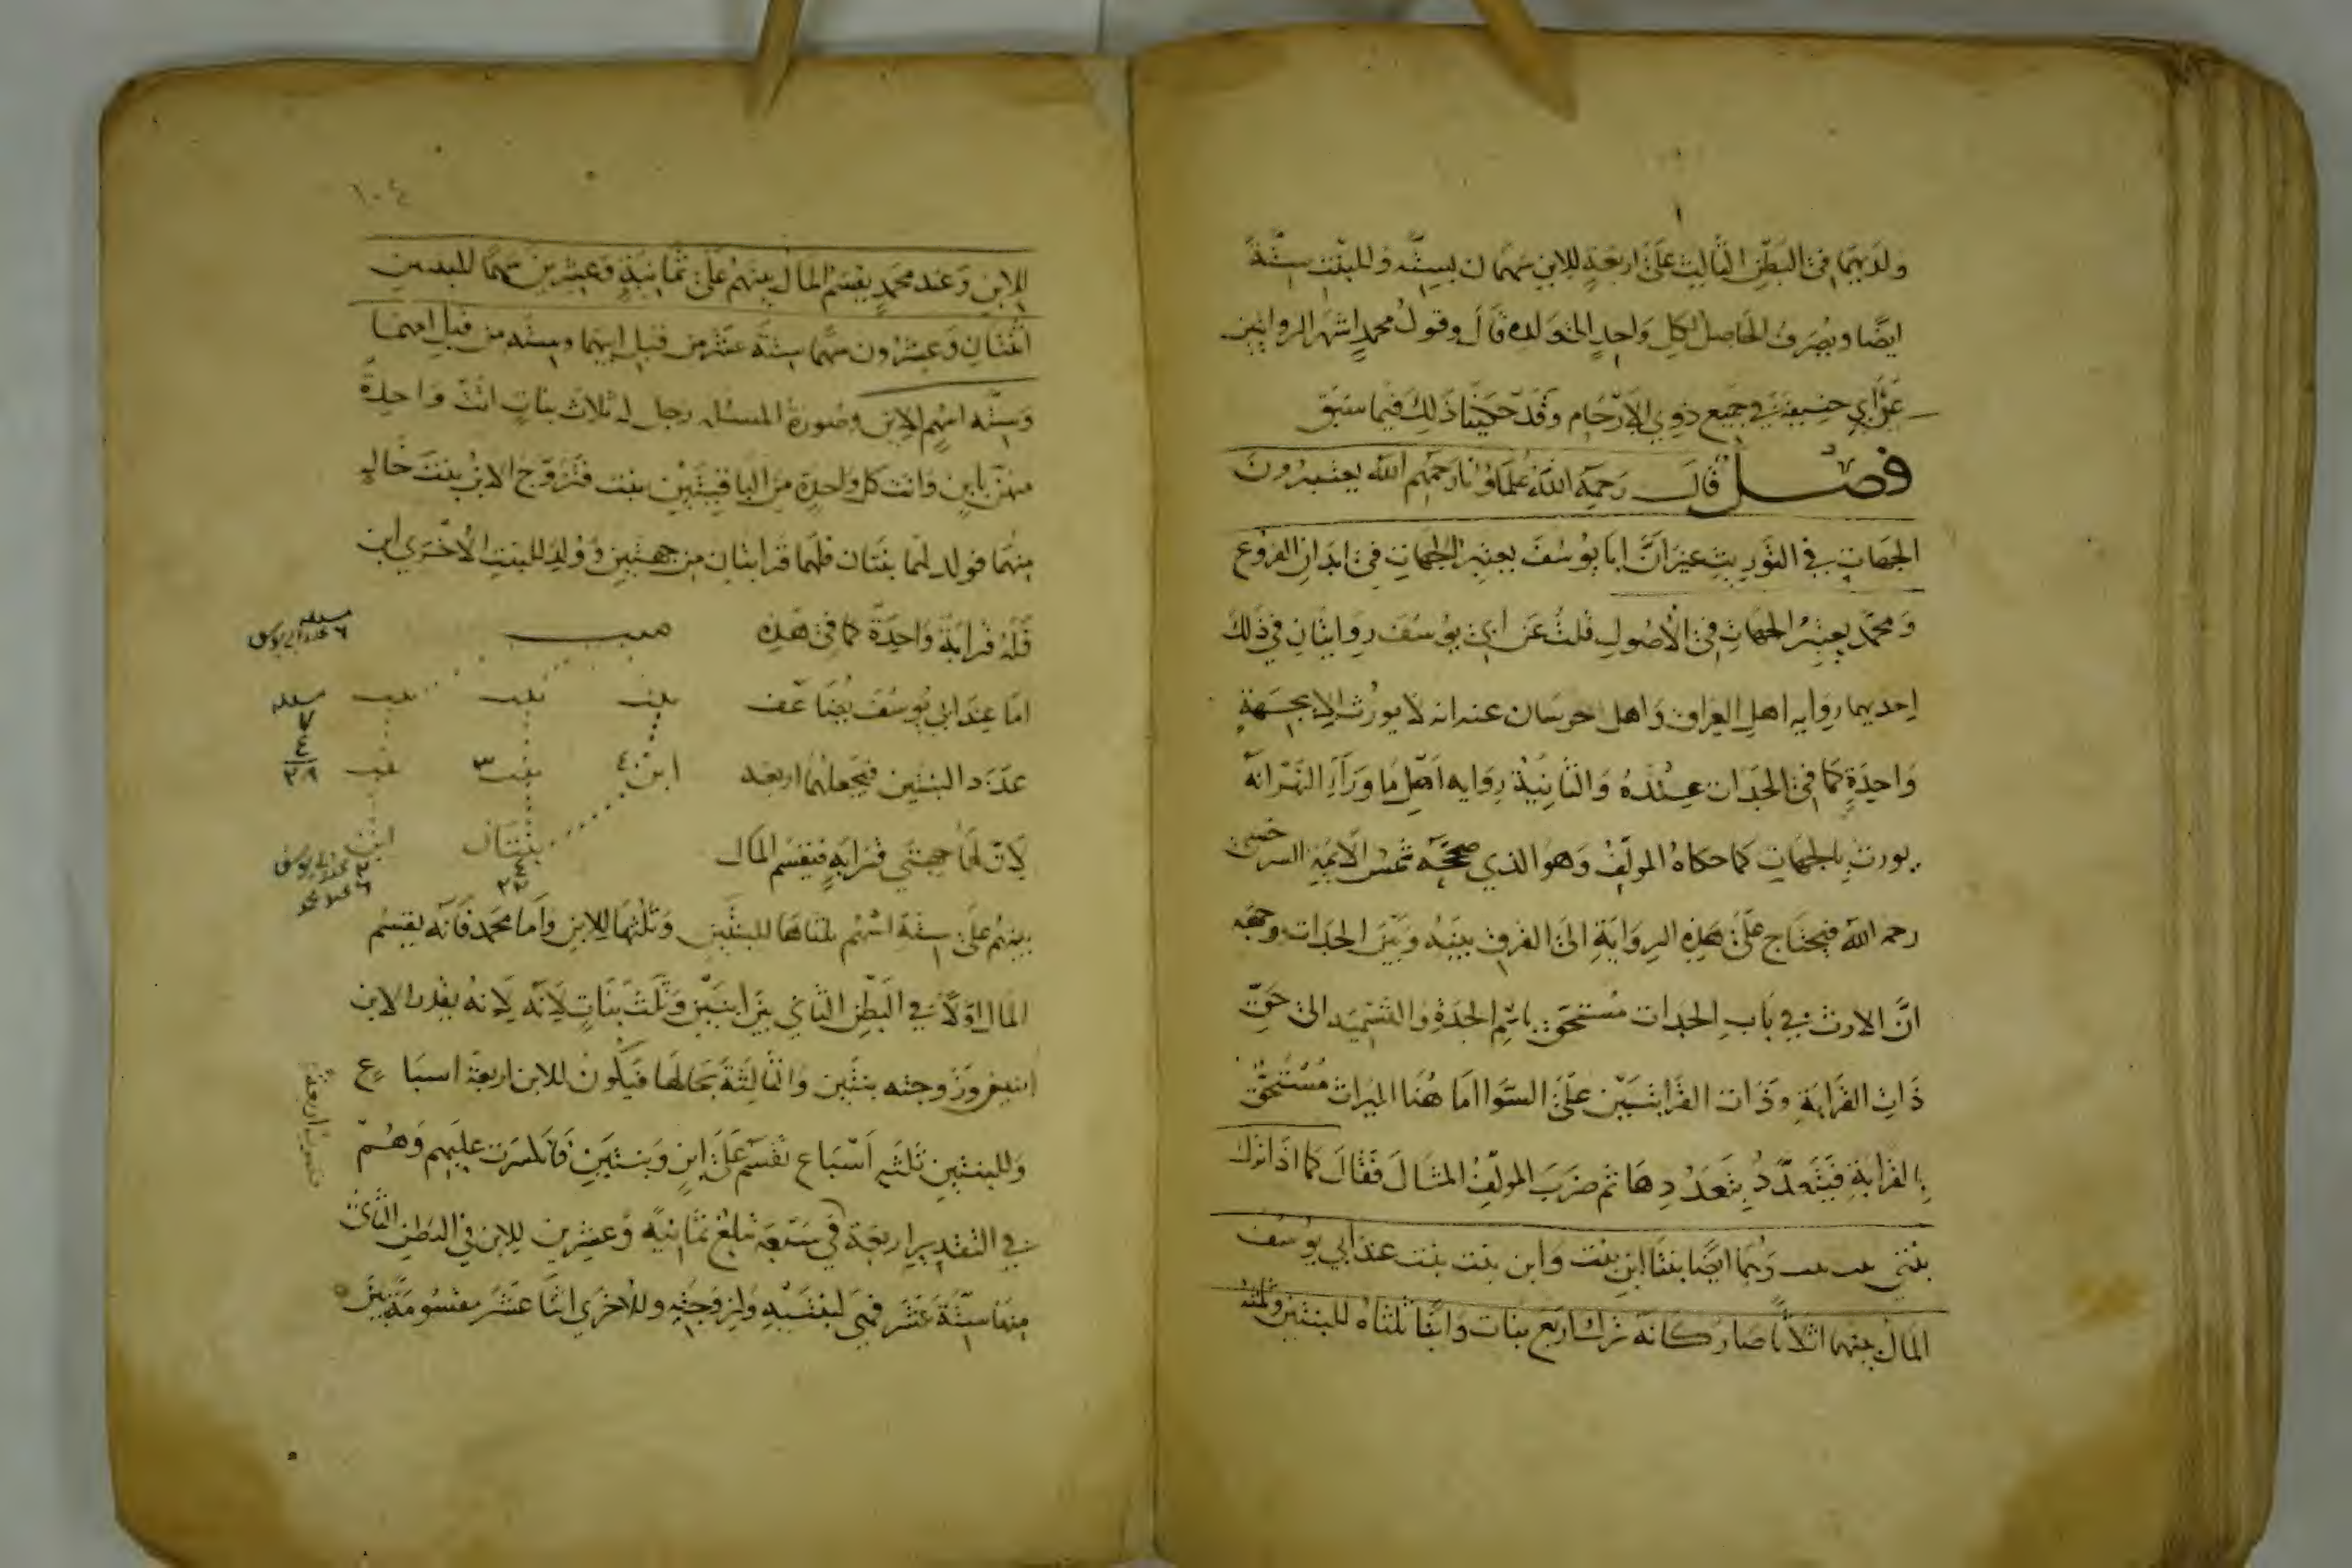 ولديهما في البطن الثالث على اربعة للابن سهمان بستة وللبنت ستة
ايضا ويصرف الحاصل لكل واحد الى ولده قال وقول محمد اشهر الروايتين
عن ابي حنيفة في جميع ذوي الارحام وقد حكينا ذلك فيما سبق
فصل قال رحمه الله علماؤنا رحمهم الله يعتبرون
الجهات في التوريث غير ان ابا يوسف يعتبر الجهات في ابدان الفروع
ومحمد يعتبر الجهات في الاصول قلت عن ابي يوسف روايتان في ذلك
احديهما رواية اهل العراق واهل خرسان عنه انه لا يورث الا بجهة
واحدة كما في الجدات عنده والثانية رواية اهل ما وراء النهر انه
يورث بالجهات كما حكاه المولف وهو الذي صححه شمس الائمة السرخسي
رحمه الله فيحتاج على هذه الرواية الى الفرق بينه وبين الجدات وجهه
ان الارث في باب الجدات مستحق باسم الجدة والتسمية الى حق
ذات القرابة وذات القرابتين على السوا اما هنا الميراث مستحق
بالقرابة فيتعدد بتعددها ثم ضرب المولف المثال فقال كما اذا ترك
بنتي بنت بنت وهما ايضا بنتا ابن بنت وابن بنت بنت عند ابي يوسف
المال بينهما اثلاثا صار كانه ترك اربع بنات وابنا ثلثاه للبنتين وثلثه
١٠٤
للابن وعند محمد يقسم المال بينهم على ثمانية وعشرين سهما للبنتين
اثنان وعشرون سهما ستة عشر من قبل ابيهما وستة من قبل امهما
وستة اسهم للابن وصورة المسئلة رجل له ثلاث بنات اتت واحدة
منهن بابن واتت كل واحدة من الباقيتين ببنت فتزوج الابن بنت خاله
منهما فولد لهما بنتان فلهما قرابتان من جهتين وولد للبنت الاخرى ابن
فله قرابة واحدة كما في هذه
ميت
مسئلة ٦ عند ابي يوسف
اما عند ابي يوسف يضاعف
بنت بنت بنت
مسئلة ٧
٤
٢٨
عدد البنتين فيجعلهما اربعة
ابن ٤ بنت ٣ بنت
لان لهما جهتي قرابة فيقسم المال
بنتان ٤ ٢٢ ابن ٢ عند ابي يوسف
٦ عند محمد
بينهم على ستة اسهم ثلثاها للبنتين وثلثها للابن واما محمد فانه يقسم
المال اولا في البطن الثاني بين ابنين وثلث بنات لانه لانه يقدر الابن
ابنين وزوجته بنتين والثالثة بحالها فيكون للابن اربعة اسباع
وللبنتين ثلثه اسباع تقسم على ابن وبنتين فانكسرت عليهم وهم
في التقدير اربعة في سبعة تبلغ ثمانية وعشرين للابن في البطن الثاني
منها ستة عشر فهي لبنتيه ولزوجته وللاخرى اثنا عشر مقسومة بين
فضربت اربعة